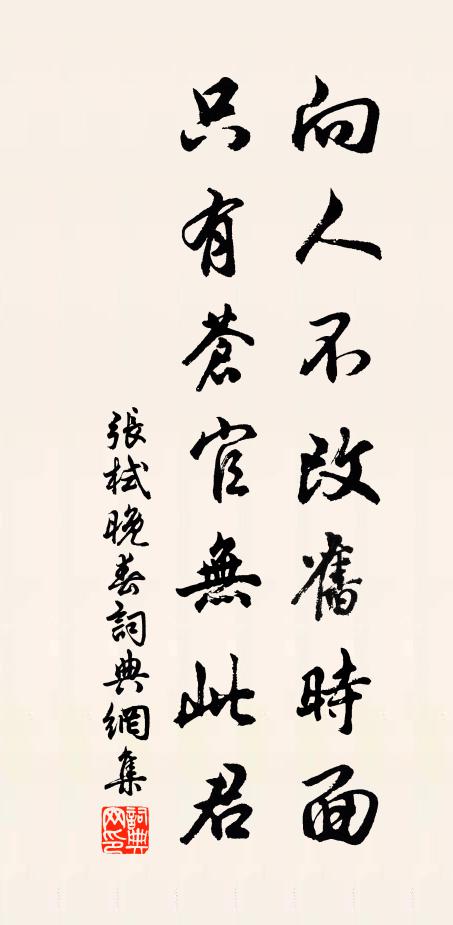 向人不改舊時面
只有蒼官無此君
張栻晚春詞典網集
詞典網印